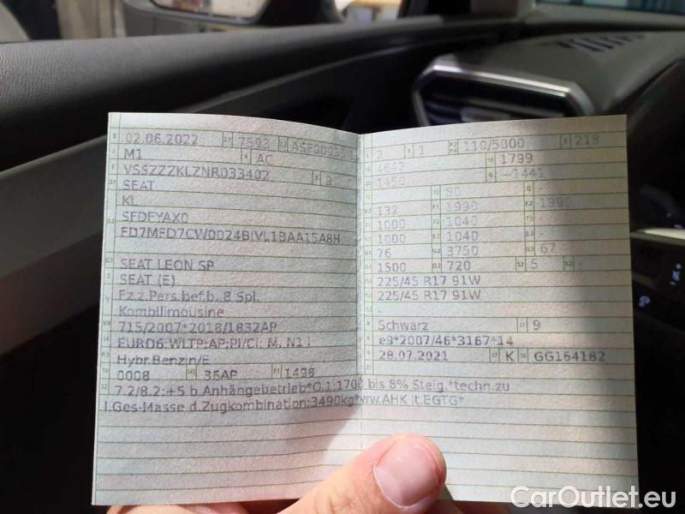 02.06.2022 7593
M1 AC
VSSZZZKLZNR033402
SEAT
KL
SFDFYAX0
SEAT LEON SP
SEAT (E)
Fz.z.Pers.bef.b. 8 Spl.
Kombilimousine
715/2007*2018/1832AP
EURO6;WLTP;AP;PI/CI; M, N1 I
Hybr.Benzin/E
0008 36AP 1498
2 1 110/5000 218
1799
1450 -1441
90
132 1990 1990
1000 1040
1000 1040
76 3750 67
1500 720 5 -
225/45 R17 91W
225/45 R17 91W
Schwarz 9
e9*2007/46*3167*14
28.07.2021 K GG164182
7.2/8.2:+5 b.Anhängebetrieb*O.1:1700 bis 8% Steig.*techn.zu
l.Ges-Masse d.Zugkombination:3490kg*vrw.AHK lt.EGTG*
CarOutlet.eu